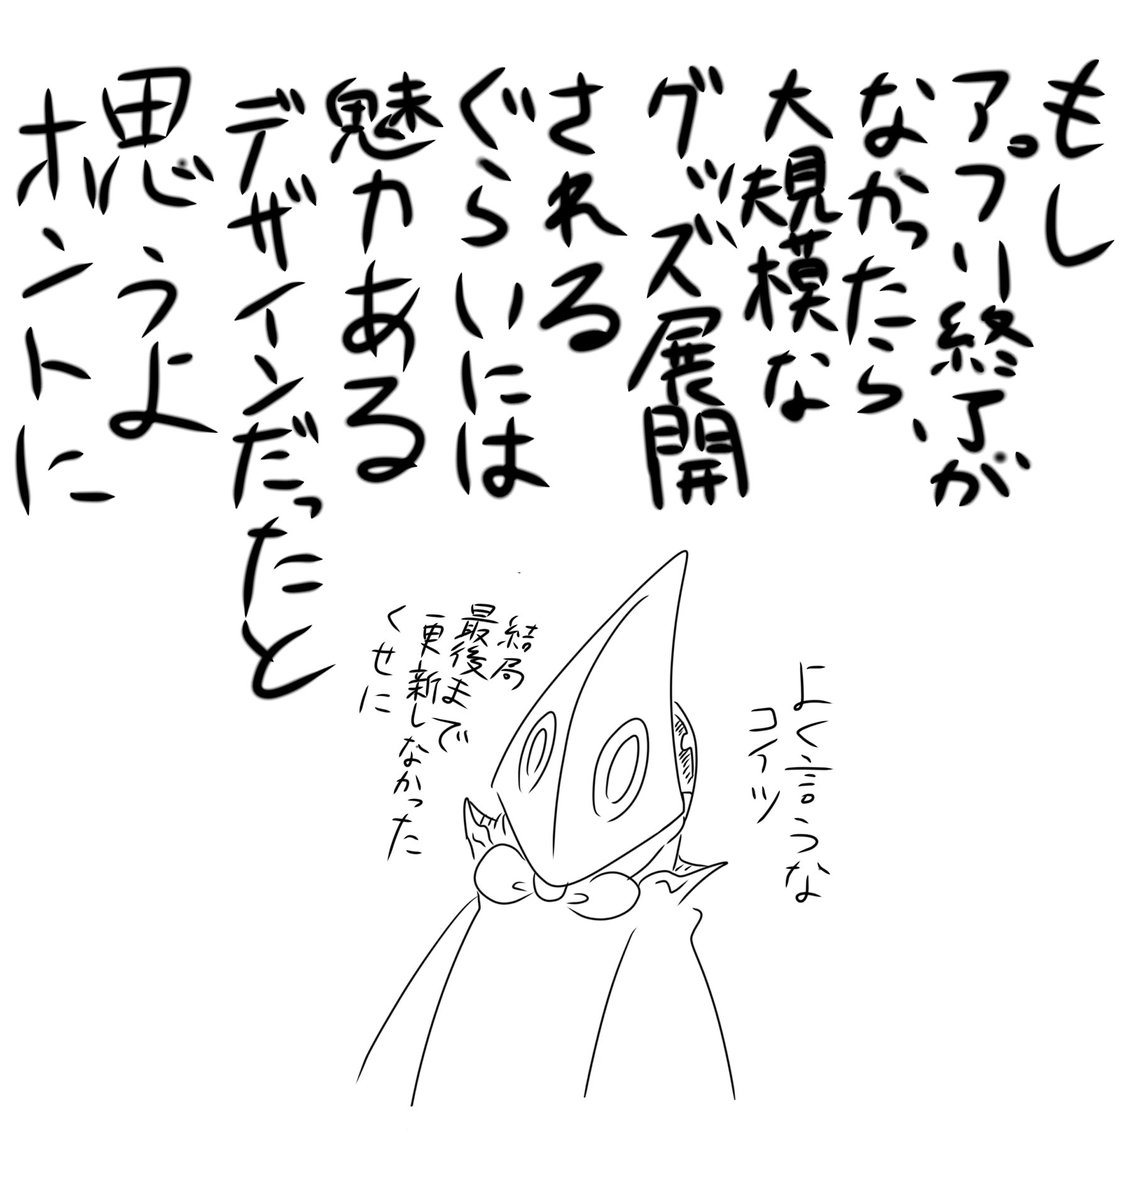 もし
アプリ終了が
なかったら、
大規模な
グッズ展開
される
ぐらいには
魅力ある
デザインだったと
思うよ
ホントに
よく言うな
コイツ
結局
最後まで
更新しなかった
くせに